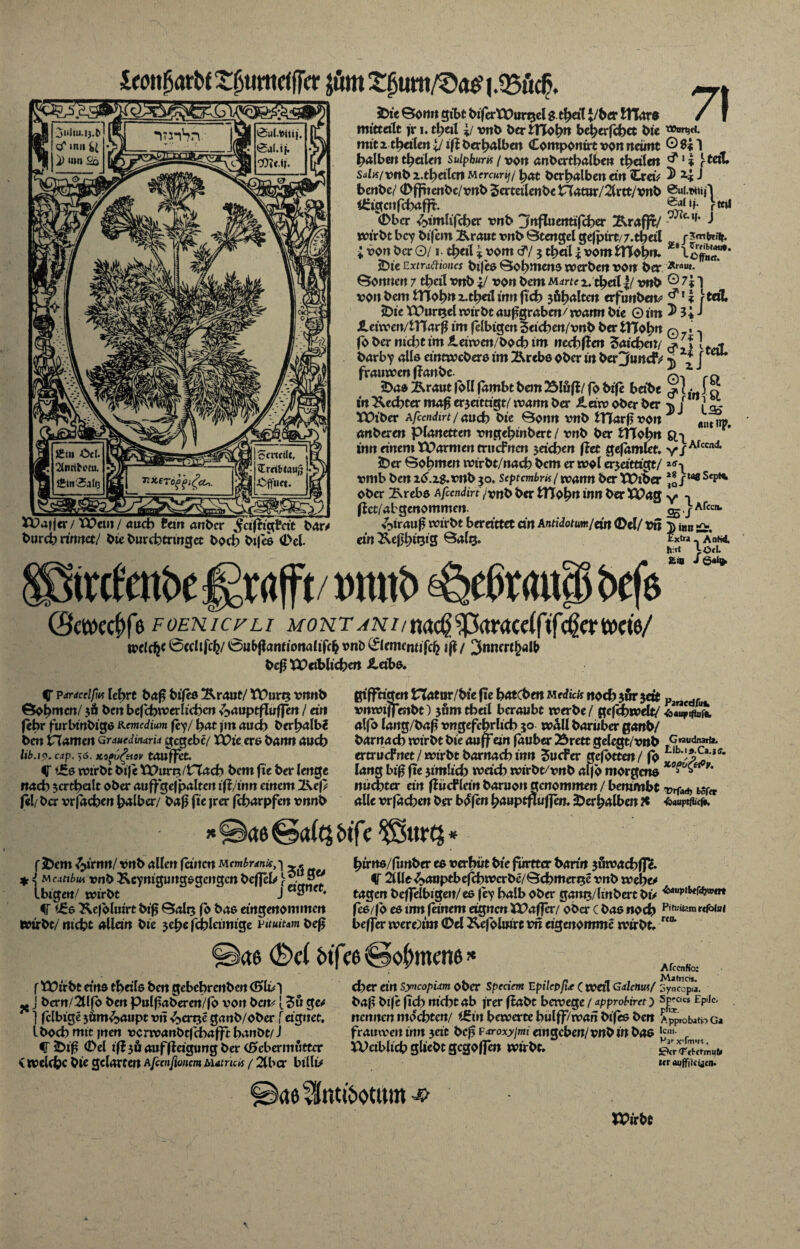 Leonhardt Thurneisser zům Thurn/Das I. Bůch.
71
Julii.13.D
♂ inn ♌
☽ inn ♋
Sul.viiij.
Sal.ij.
Me.ij.
Ein Oel.
Antidotu.
Ein Saltz
Zerteilt,
Treibtauß
Offnet.
Die Sonn gibt diser Wurtzel 8. theil ½/der Mars
mitteilt jr 1. theil ½/ vnd der Mohn beherschet die
mit 2. theilen ½/ ist derhalben Componirt von neünt
halben theilen Sulphuris / von anderthalben theilen
Salis/vnd 2. theilen Mercurij/ hat derhalben ein Tref
bende/ Offnende/vnd Zerteilende Natur/Artt/vnd
Eigenschafft.
Ober Himlischer vnd Influentischer Krafft/
wirdt bey disem Kraut vnd Stengel gespirt/7. theil
½ von der ☉/ 1. theil ½ vom ♂/ 3 theil ½ vom Mohn.
Die Extractiones dises Sohmens werden von der
Sonnen 7 theil vnd ½/ von dem Marte 2. theil ½/ vnd
von dem Mohn 2. theil inn sich zůhalten erfunden/
Die Wurtzel wirdt außgraben/wann die ☉ im
Leiwen/Marß im selbigen Zeichen/vnd der Mohn
so der nicht im Leiwen/doch im nechsten Zaichen/
darby alls eintweders im Krebs oder in der Junck/
frauwen stande.
Das Kraut soll sambt dem Blůst/ so dise beide
in Rechter maß erzeittigt/ wann der Leiw oder der
Wider Ascendirt/auch die Sonn vnd Marß von
anderen Planetten vngehindert/ vnd der Mohn
inn einem Warmen truckhen zeichen stet gesamlet.
Der Sohmen wirdt/nach dem er wol erzeittigt/
vmb den 26.28.vnd 30. Septembris/wann der Wider
oder Krebs Ascendirt/vnd der Mohn inn der Wag
stet/abgenommen.
Hirauß wirdt bereittet ein Antidotum/ein Oel/ vñ
ein Reßhitzig Saltz.
Wasser/Wein/ auch kein ander Feistigkeit dar/
durch rinnet/ die durchtringet doch dises Oel.
Wirckende Krafft/vnnd Gebrauch des
Gewechs FOENICVLI MONTANI/nach Paracelsischer weis/
welche Seelisch/Substantionalisch vnd Elementisch ist/ Innerthalb
deß Weiblichen Leibs.
Paracelsus lehrt daß dises Kraut/Wurtz vnnd
Sohmen/ zů den beschwerlichen Hauptflussen/ ein
sehr fürbindigs Remedium sey/ hat jm auch derhalbe
den Namen Grauedinaria gegebe/ Wie ers dann auch
lib.19. cap. 36. tauffet.
Es wirdt dise Wurtz/Nach dem sie der lenge
nach zertheilt oder auffgespalten ist/inn einem Kes/
sel/ der vrsachen halber/ daß sie jrer scharpfen vnnd
gifftigen Natur/die sie hat(den Medicis noch zůr zeit
vnwissendt) zům theil beraubt werde/ geschwelt/
also lang/daß vngefehrlich 30. wäll darüber gand/
darnach wirdt die auff ein sauber Brett gelegt/vnd
ertrucknet/wirdt darnach inn Zucker gesotten/so
lang biß sie zimlich weich wirdt/vnd also morgens
nüchter ein stücklein daruon genommen / benimbt
alle vrsachen der bösen hauptflussen. Derhalben
Das Saltz dise Wurtz
Dem Hirnn/ vnd allen seinen Membranis,
Meatibus vnd Reynigungsgengen dessel/
bigen/ wirdt
Zů ge/
eignet.
Es Resoluirt diß Saltz so das eingenommen
wirdt/ nicht allein die zehe schleimige Vituitam deß
hirns/sunder es verhüt die fürtter darin zůwachsse.
Alle Hauptbeschwerde/Schmertze vnd wehe/
tagen desselbigen/ es sey halb oder gantz/lindert di/
ses/so es inn seinem eignen Wasser/ oder (das noch
besser were)in Oel Resoluirt vñ eigenomme wirdt.
Das Oel dises Sohmens
Wirdt eins theils den gebehrenden Gli/
dern/Also den Pulßaderen/so von den/
selbige zům Haupt vñ Hertze gand/oder
doch mit jnen verwandtschafft handt/
Zů ge/
eignet.
Diß Oel ist zů auffsteigung der Gebermůtter
(welche die gelarten Ascensionem Matricis / Aber billi/
cher ein Syncopiam oder Speciem Epilepsiæ (weil Galenus/
daß dise sich nicht ab jrer stadt bewege / approbiret)
nennen möchten/ Ein bewerte hülff/wañ dises den
frauwen inn zeit deß Paroxysmi eingeben/vnd in das
Weiblich gliedt gegossen wirdt.
Das Antidotum
Wirdt